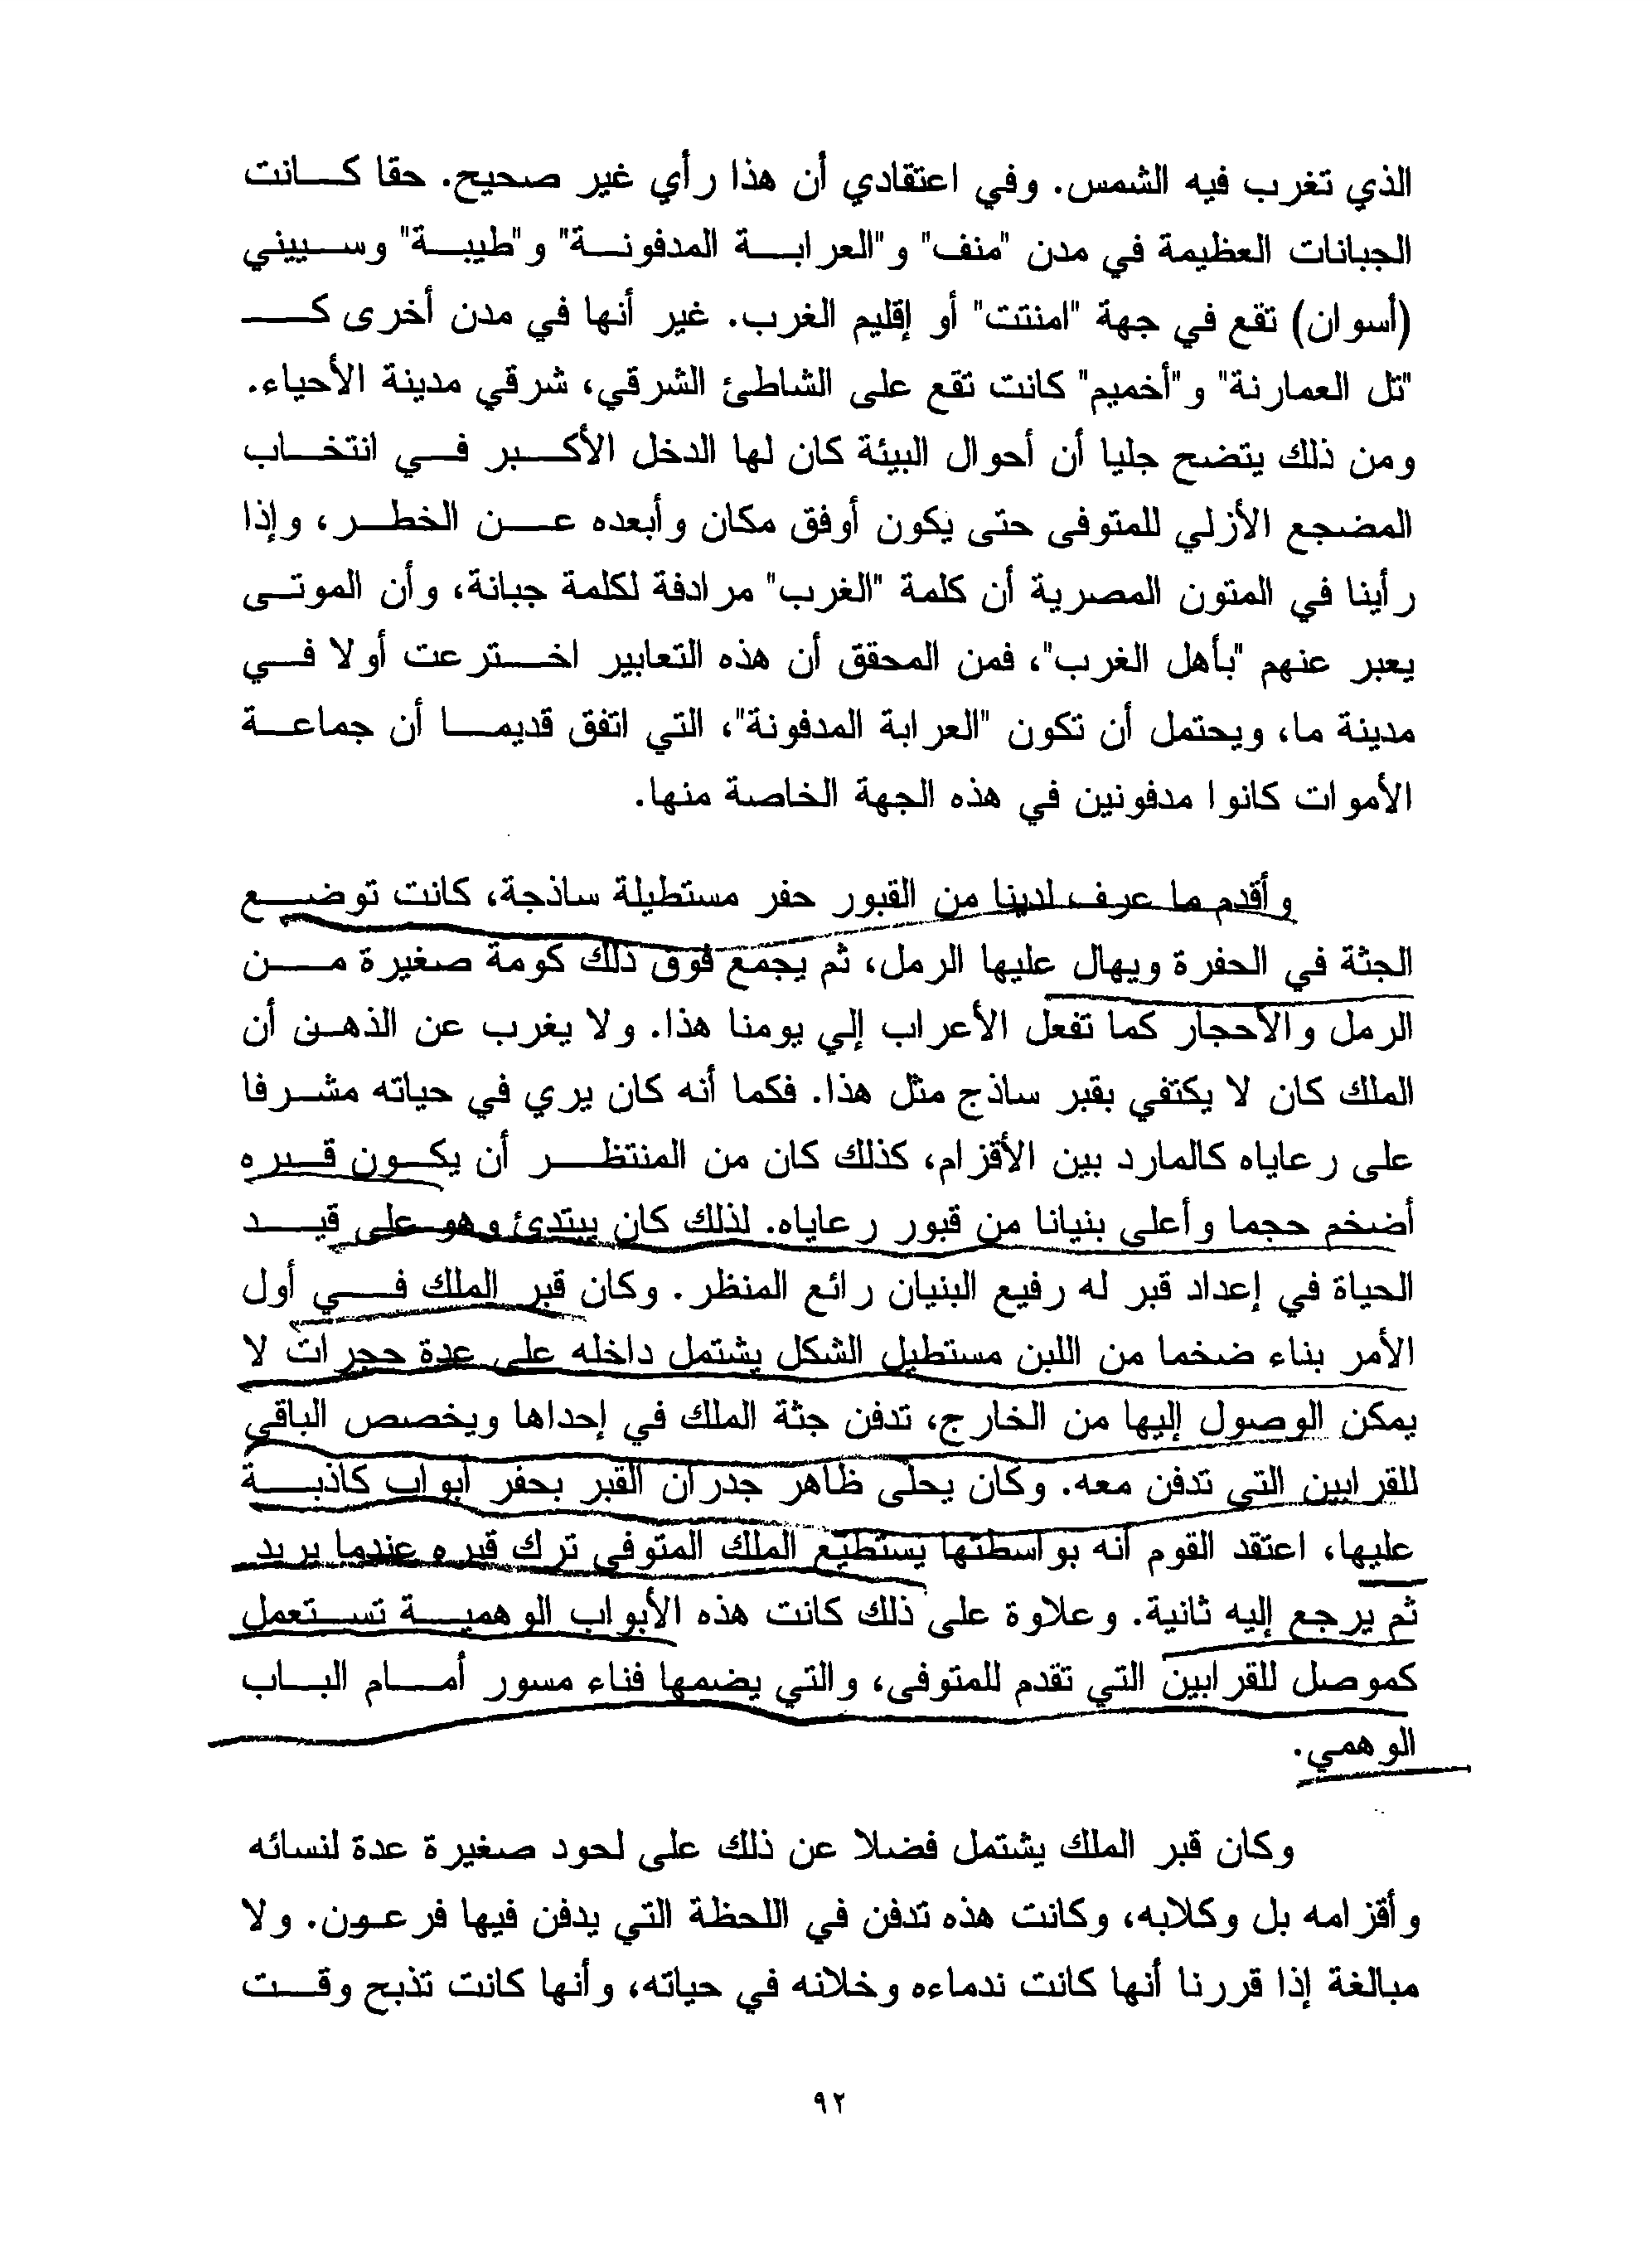 الذي تغرب فيه الشمس. وفي اعتقادي أن هذا رأي غير صحيح. حقا كانت
الجبانات العظيمة في مدن "منف" و"العرابة المدفونة" و"طيبة" وسييني
(أسوان) تقع في جهة "امنتت" أو إقليم الغرب. غير أنها في مدن أخرى ك
"تل العمارنة" و"أخميم" كانت تقع على الشاطئ الشرقي، شرقي مدينة الأحياء.
ومن ذلك يتضح جليا أن أحوال البيئة كان لها الدخل الأكبر في انتخاب
المضجع الأزلي للمتوفى حتى يكون أوفق مكان وأبعده عن الخطر، وإذا
رأينا في المتون المصرية أن كلمة "الغرب" مرادفة لكلمة جبانة، وأن الموتى
يعبر عنهم "بأهل الغرب"، فمن المحقق أن هذه التعابير اخترعت أولا في
مدينة ما، ويحتمل أن تكون "العرابة المدفونة"، التي اتفق قديما أن جماعة
الأموات كانوا مدفونين في هذه الجهة الخاصة منها.
وأقدم ما عرف لدينا من القبور حفر مستطيلة ساذجة، كانت توضع
الجثة في الحفرة ويهال عليها الرمل، ثم يجمع فوق ذلك كومة صغيرة من
الرمل والأحجار كما تفعل الأعراب إلي يومنا هذا. ولا يغرب عن الذهن أن
الملك كان لا يكتفي بقبر ساذج مثل هذا. فكما أنه كان يري في حياته مشرفا
على رعاياه كالمارد بين الأقزام، كذلك كان من المنتظر أن يكون قبره
أضخم حجما وأعلى بنيانا من قبور رعاياه. لذلك كان يبتدئ وهو على قيد
الحياة في إعداد قبر له رفيع البنيان رائع المنظر. وكان قبر الملك في أول
الأمر بناء ضخما من اللبن مستطيل الشكل يشتمل داخله على عدة حجرات لا
يمكن الوصول إليها من الخارج، تدفن جثة الملك في إحداها ويخصص الباقي
للقرابين التي تدفن معه. وكان يحلى ظاهر جدران القبر بحفر أبواب كاذبة
عليها، اعتقد القوم أنه بواسطتها يستطيع الملك المتوفى ترك قبره عندما يريد
ثم يرجع إليه ثانية. وعلاوة على ذلك كانت هذه الأبواب الوهمية تستعمل
كموصل للقرابين التي تقدم للمتوفى، والتي يضمها فناء مسور أمام الباب
الوهمي.
وكان قبر الملك يشتمل فضلا عن ذلك على لحود صغيرة عدة لنسائه
وأقزامه بل وكلابه، وكانت هذه تدفن في اللحظة التي يدفن فيها فرعون. ولا
مبالغة إذا قررنا أنها كانت ندماءه وخلانه في حياته، وأنها كانت تذبح وقت
٩٢